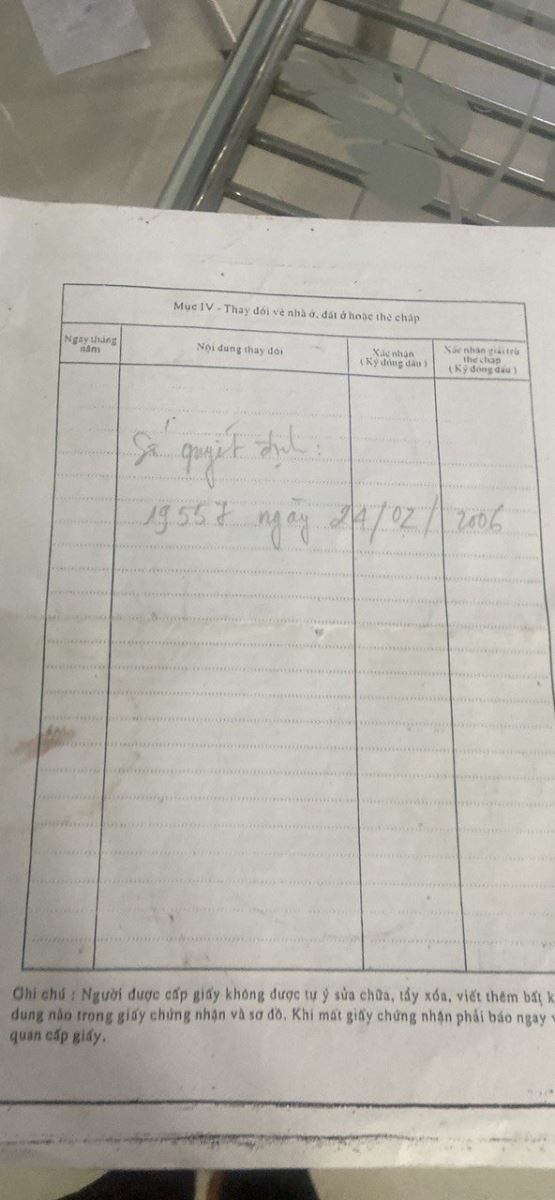 Mục IV - Thay đổi về nhà ở, đất ở hoặc thế chấp
Ngày tháng năm
Nội dung thay đổi
Xác nhận (Ký đóng dấu)
Xác nhận giải trừ thế chấp (Ký đóng dấu)
Số quyết định:
19557 ngày 24/02/2006
Ghi chú : Người được cấp giấy không được tự ý sửa chữa, tẩy xóa, viết thêm bất k
dung nào trong giấy chứng nhận và sơ đồ. Khi mất giấy chứng nhận phải báo ngay
quan cấp giấy.